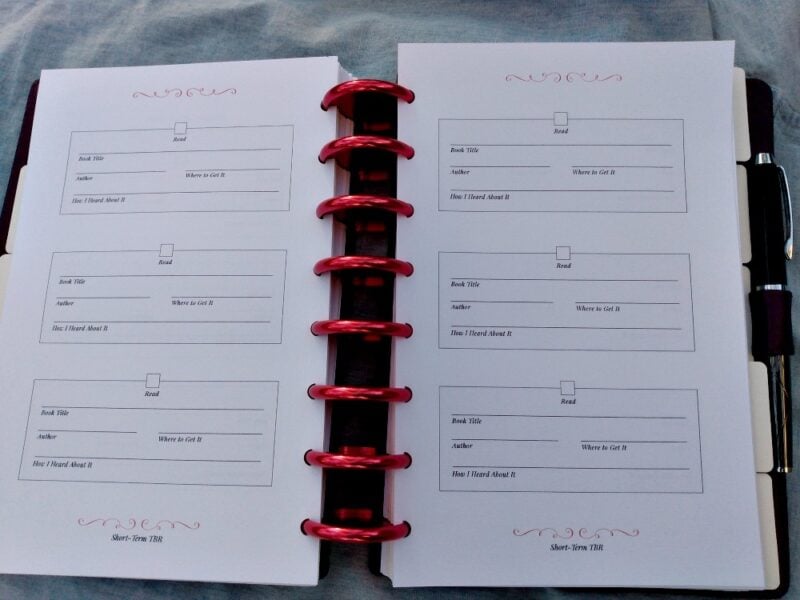 Read
Book Title
Author Where to Get It
How I Heard About It
Read
Book Title
Author Where to Get It
How I Heard About It
Read
Book Title
Author Where to Get It
How I Heard About It
Short-Term TBR
Read
Book Title
Author Where to Get It
How I Heard About It
Read
Book Title
Author Where to Get It
How I Heard About It
Read
Book Title
Author Where to Get It
How I Heard About It
Short-Term TBR